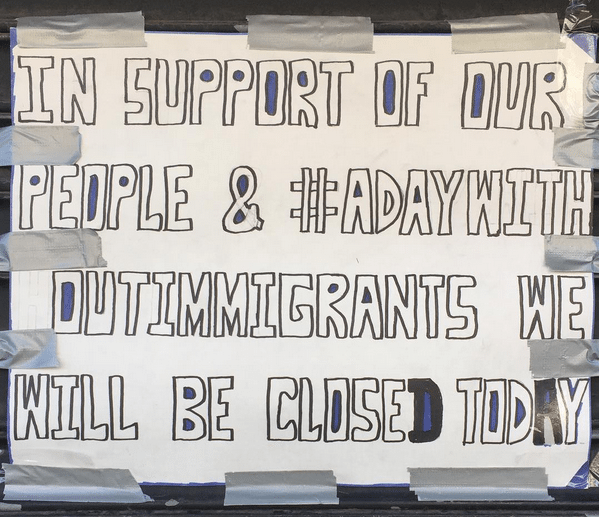 IN SUPPORT OF OUR
PEOPLE & #ADAYWITH
OUTIMMIGRANTS WE
WILL BE CLOSED TODAY